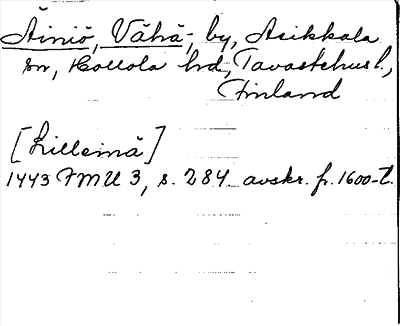 Äiniö, Vähä-, by, Asikkala
sn, Hollola hd, Tavastehus l.,
Finland
[Lilleinä]
1443 FMU 3, s. 284 avskr. fr. 1600-t.